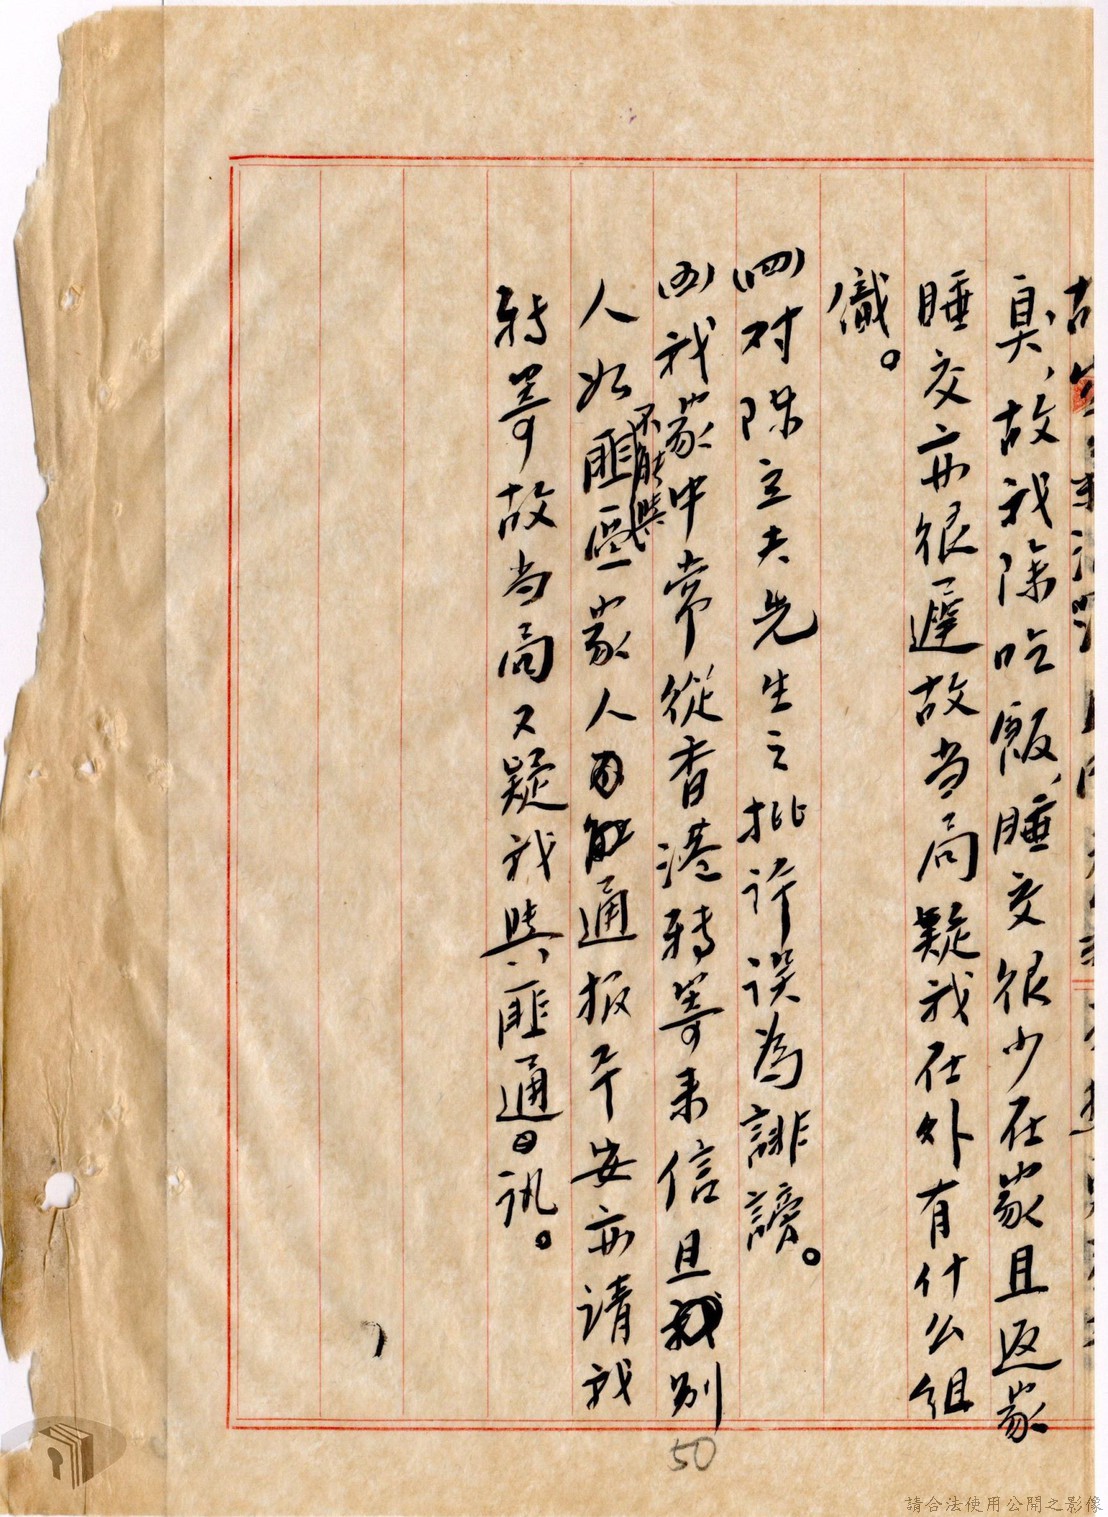 臭、故我除吃飯、睡交很少在家且返家
睡交亦很遲故当局疑我在外有什么组
織。
(四)对陈立夫先生之批评误為誹謗。
(五)我家中常從香港转寄来信且别
人如不能與匪區家人通报平安亦请我
转寄故当局又疑我與匪通讯。
50
請合法使用公開之影像